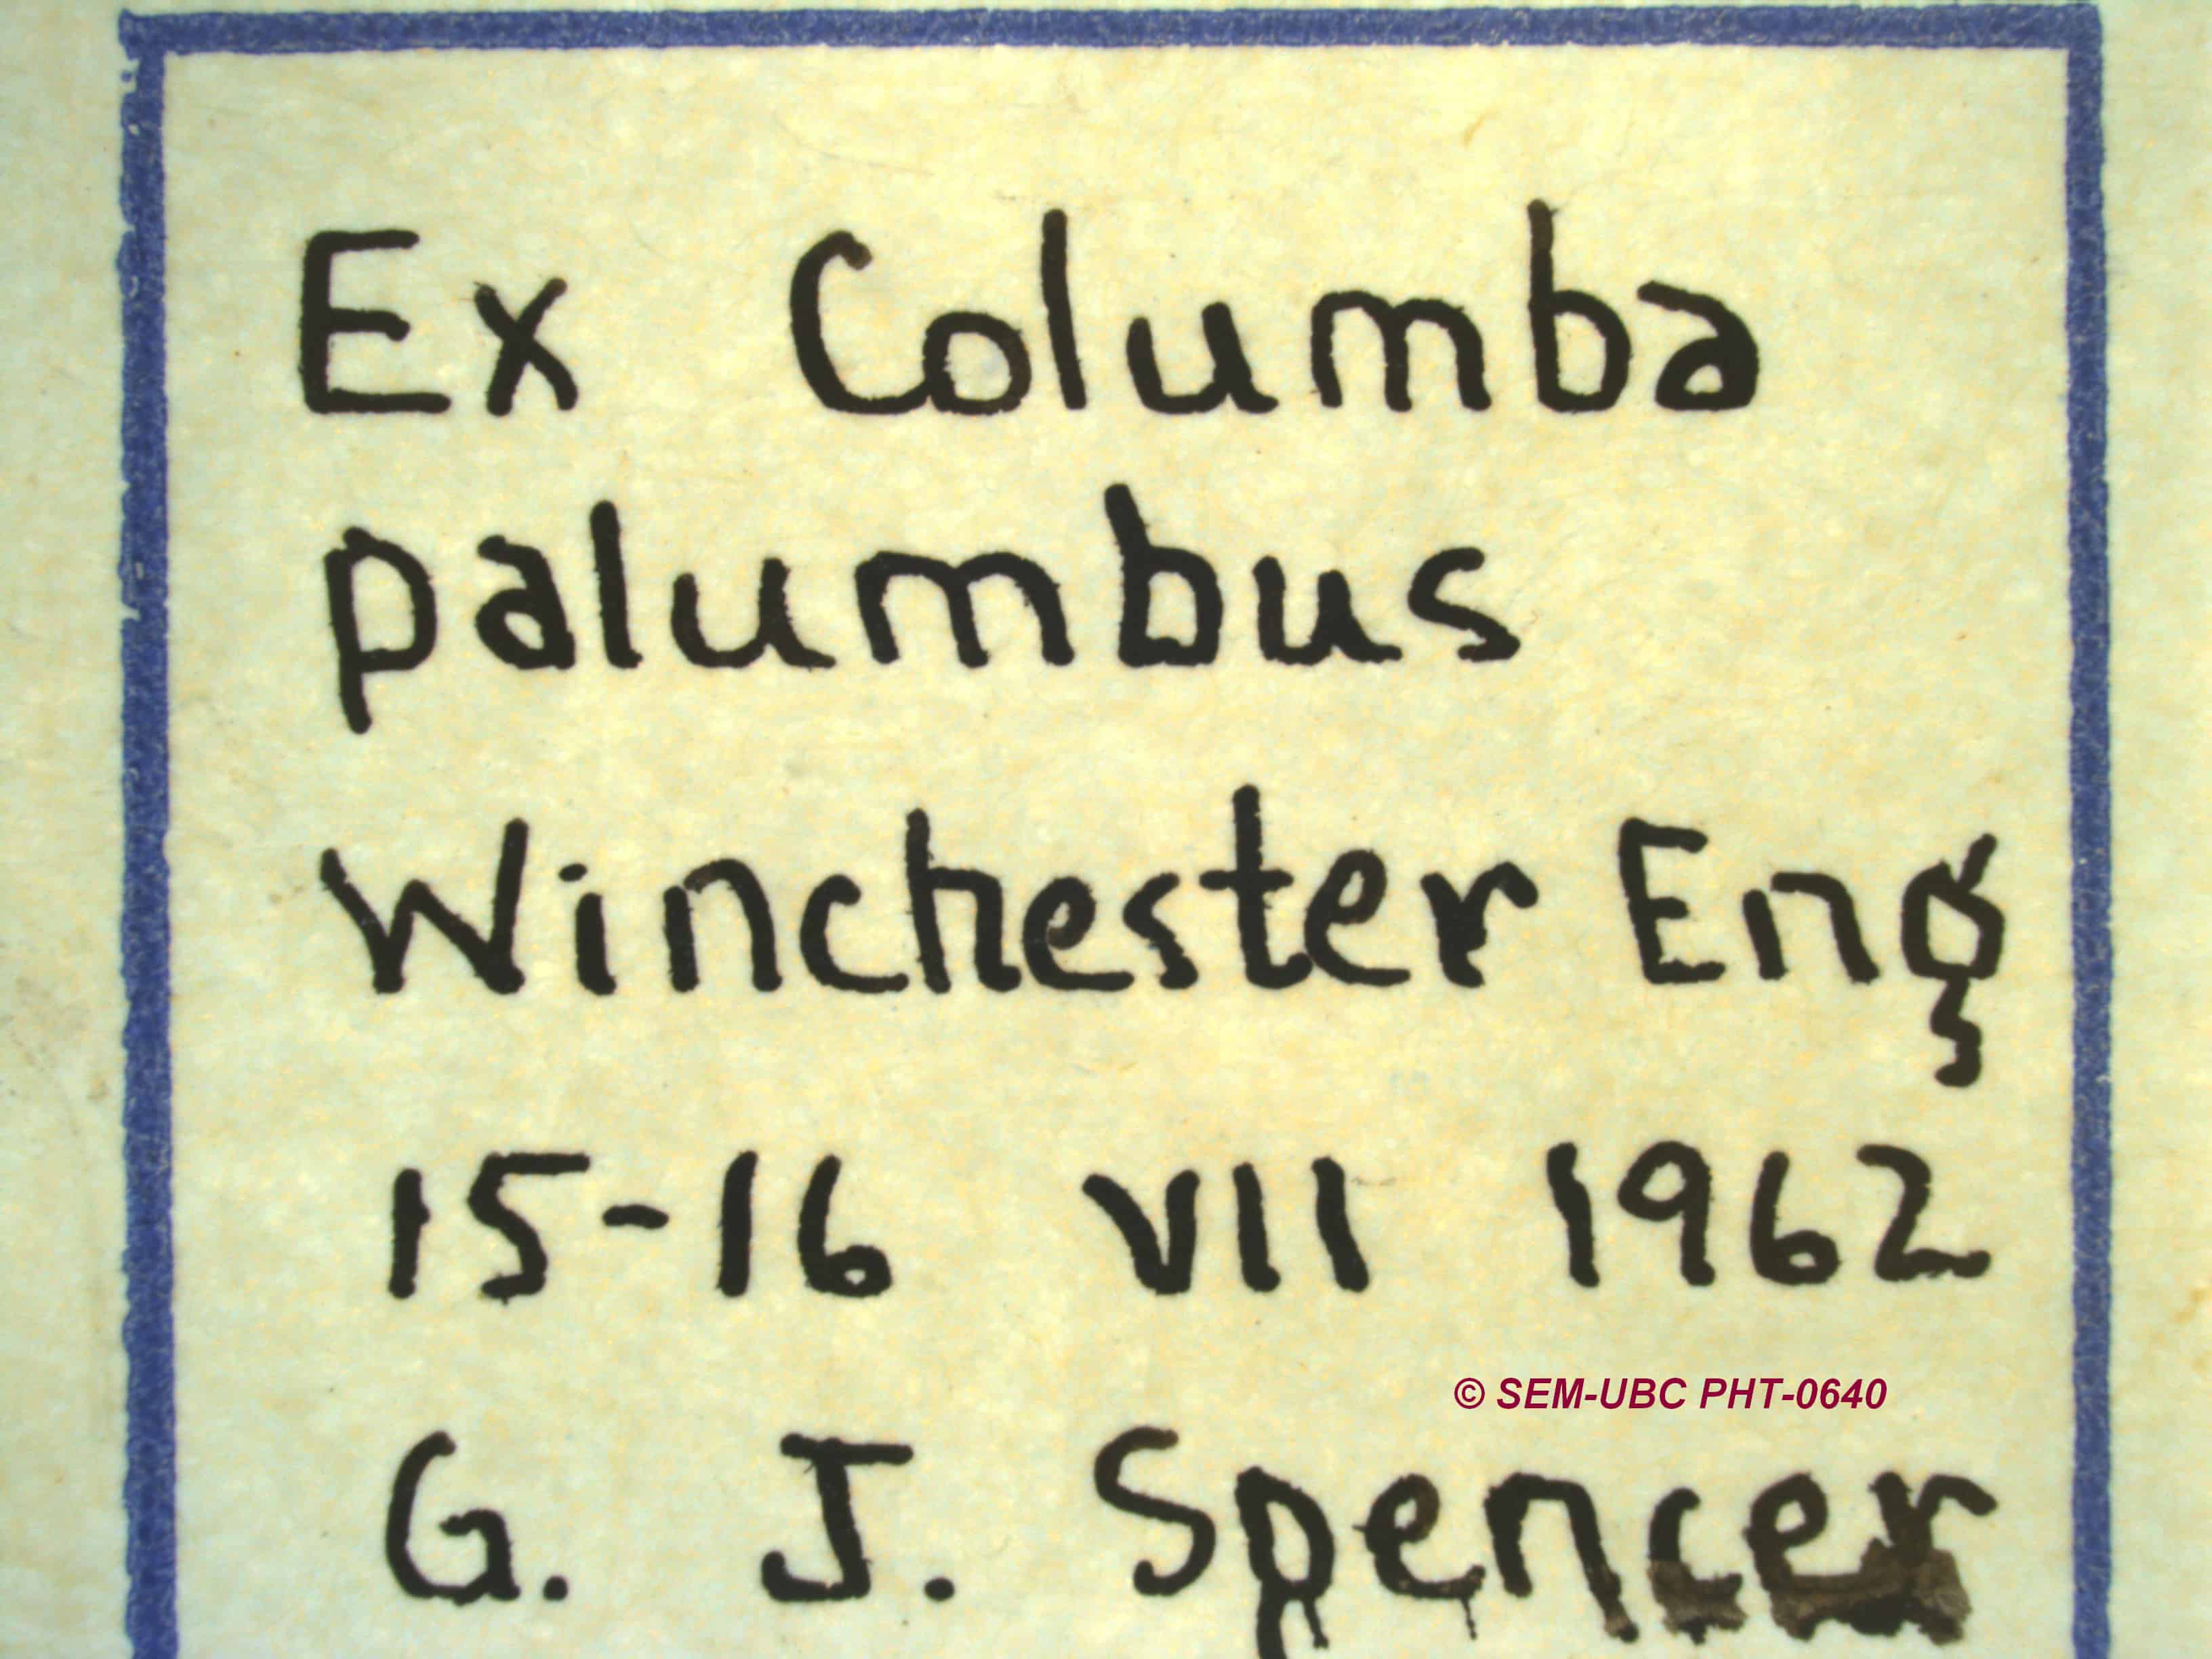 Ex Columba
palumbus
Winchester Eng
15-16 VII 1962
© SEM-UBC PHT-0640
G. J. Spencer